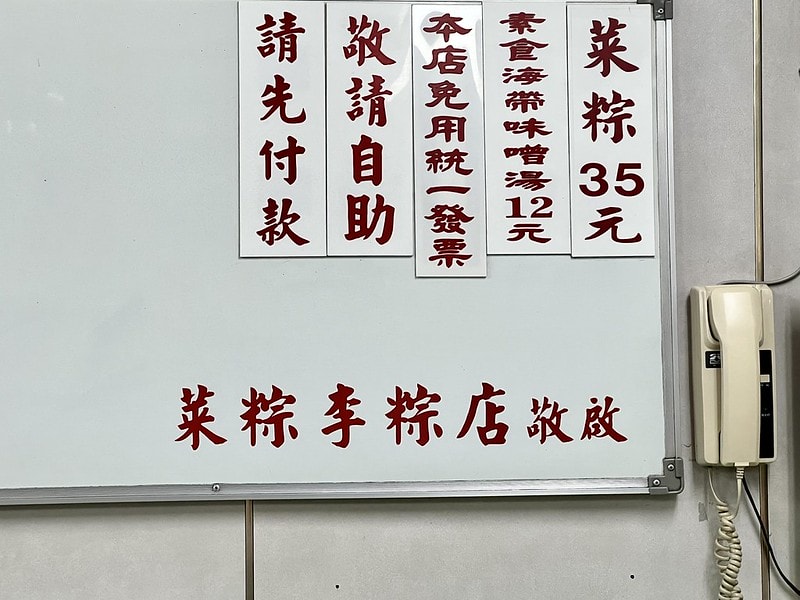 菜粽35元
素食海帶味噌湯12元
本店免用統一發票
敬請自助
請先付款
菜粽李粽店敬啟